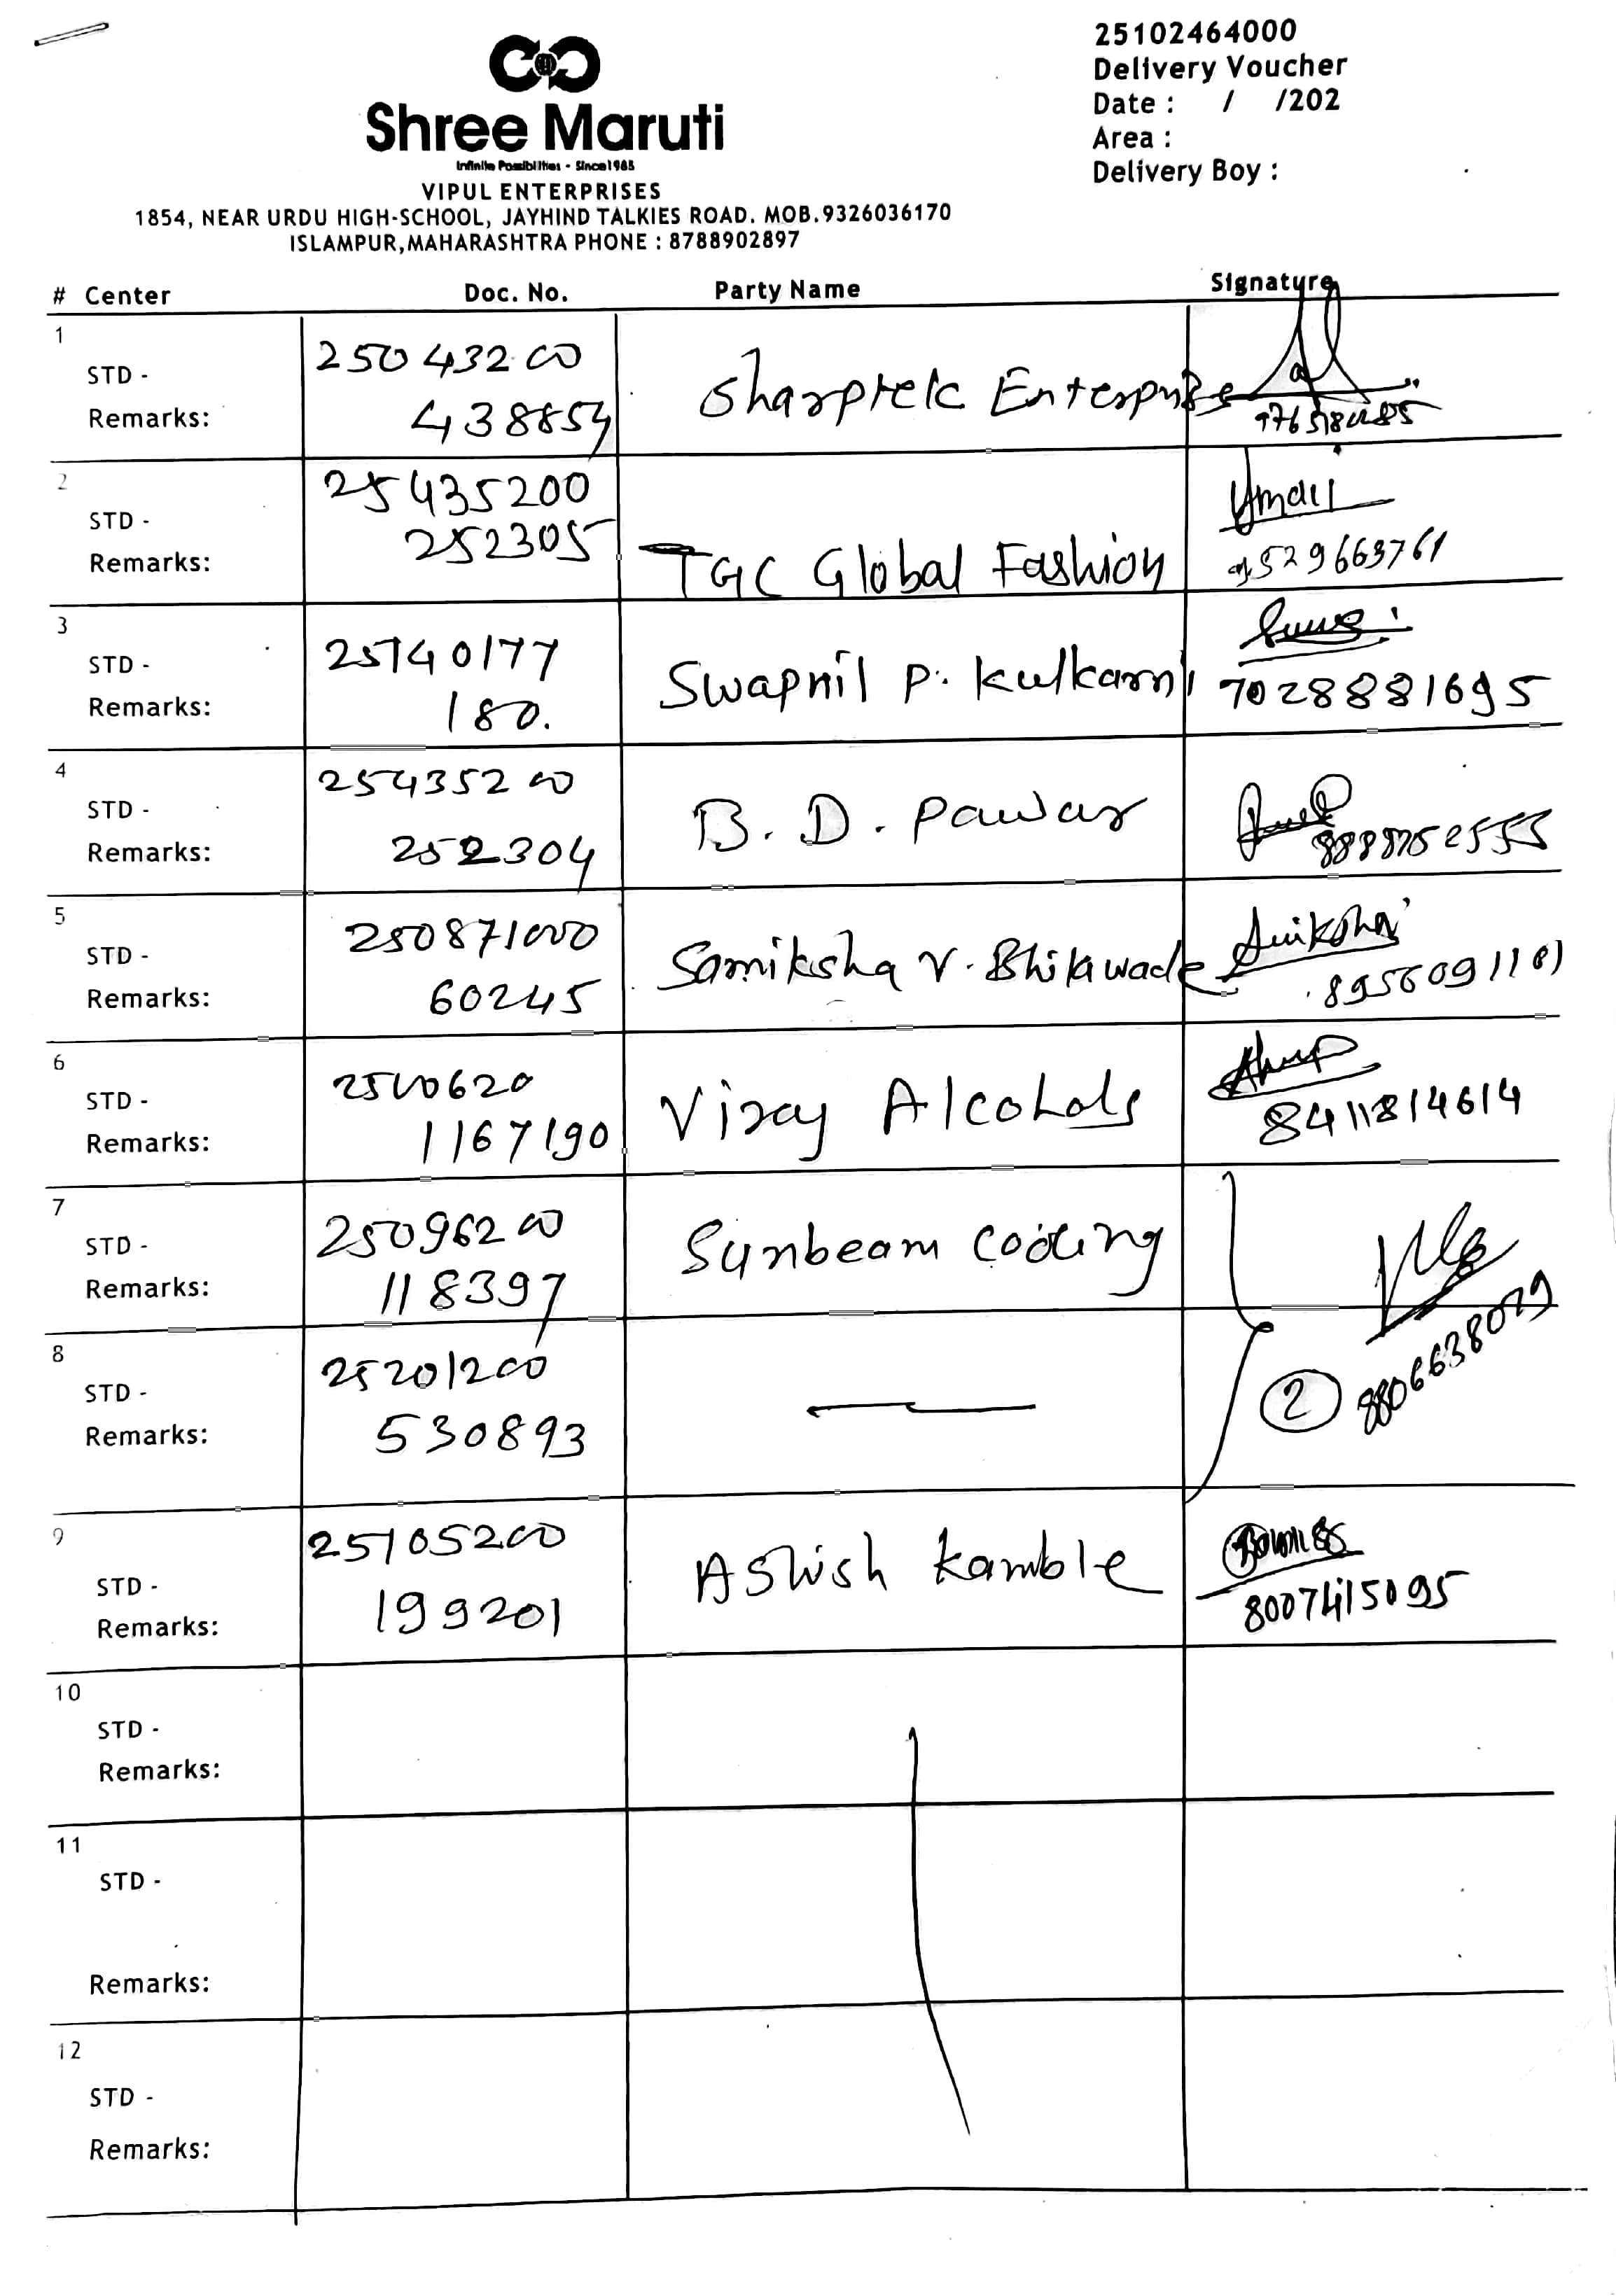 25102464000
Delivery Voucher
Date : / /202
Area :
Delivery Boy :
Shree Maruti
Infinite Possibilities - Since1985
VIPUL ENTERPRISES
1854, NEAR URDU HIGH-SCHOOL, JAYHIND TALKIES ROAD. MOB.9326036170
ISLAMPUR,MAHARASHTRA PHONE : 8788902897
# Center Doc. No. Party Name Signature
1
STD - 25043200
Remarks: 438854 Sharptek Enterprise
2
STD - 25435200
Remarks: 252305 TGC Global Fashion 9529663761
3
STD - 25140177
Remarks: 180. Swapnil P. Kulkarni 7028881695
4
STD - 25435200
Remarks: 252304 B. D. Pawar
5
STD - 250871000
Remarks: 60245 Samiksha V. Bhikawade 8956091101
6
STD -
Remarks: 1167190 Viraj Alcohols 8411814614
7
STD - 25096200
Remarks: 118397 Sunbeam Cooling
8
STD - 25201200
Remarks: 530893 2 8806638029
9
STD - 25105200
Remarks: 199201 Ashish Kamble 8007415095
10
STD -
Remarks:
11
STD -
Remarks:
12
STD -
Remarks: